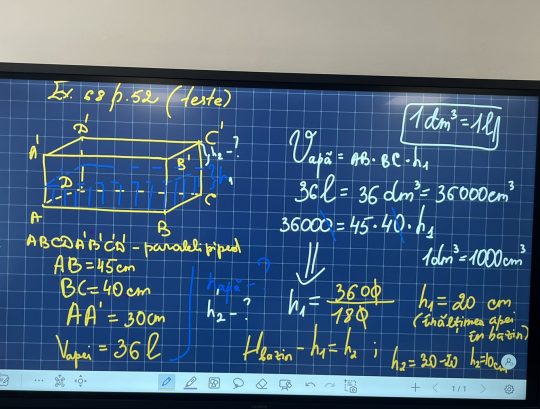 Ex. 68 p.52 (teste)
1 dm³ = 1 l
D' C'
A' B'
h₂-?
h₁
D C
A B
V apă = AB · BC · h₁
36 l = 36 dm³ = 36000 cm³
36000 = 45 · 40 · h₁
1 dm³ = 1000 cm³
ABCDA'B'C'D' - paralelipiped
AB = 45 cm
BC = 40 cm
AA' = 30 cm
V apei = 36 l
h apă - ?
h₂ - ?
h₁ = 3600 / 180
h₁ = 20 cm
(înălțimea apei
în bazin)
H bazin - h₁ = h₂ ; h₂ = 30 - 20 h₂ = 10 cm
1/1